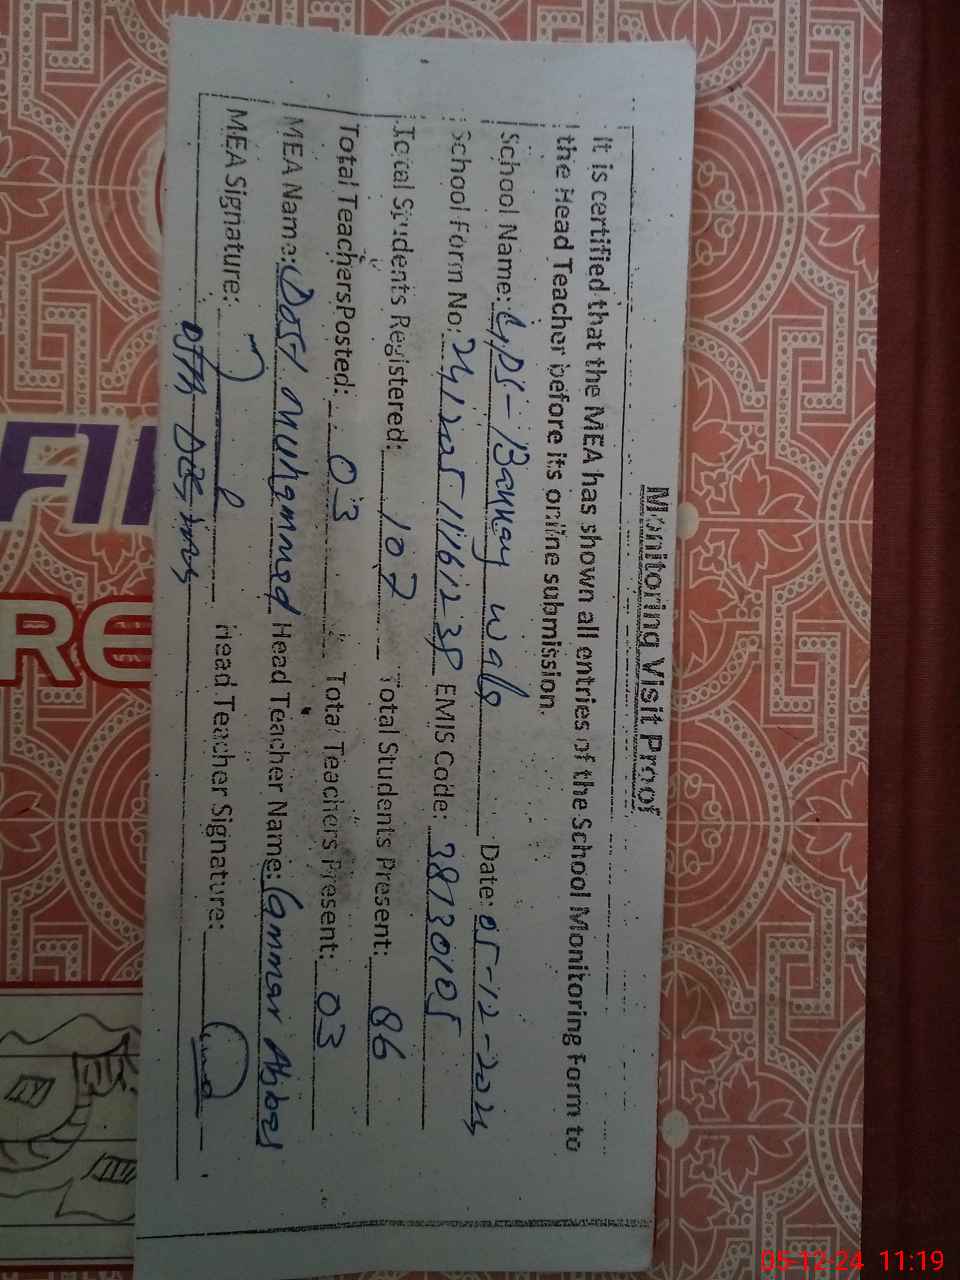 Monitoring Visit Proof
It is certified that the MEA has shown all entries of the School Monitoring Form to
the Head Teacher before its online submission.
School Name: GPS - Bannay wala Date: 05-12-2024
School Form No: EMIS Code: 38130105
Total Students Registered: 107 Total Students Present: 86
Total Teachers Posted: 03 Total Teachers Present: 03
MEA Name: Dost Muhammad Head Teacher Name: Ammar Abbas
MEA Signature: Head Teacher Signature:
FI
RE
05-12-24 11:19